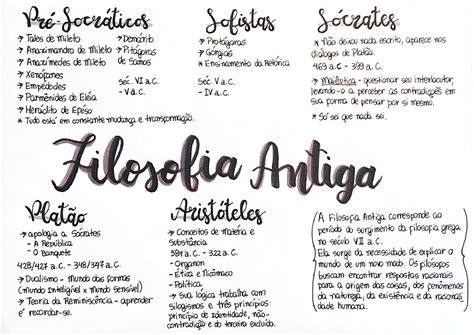 Pré-Socráticos
→ Tales de Mileto
→ Anaximandro de Mileto
→ Anaxímedes de Mileto
→ Xenófanes
→ Empédocles
→ Parmênides de Eléia
→ Heráclito de Éfeso
→ Demócrito
→ Pitágoras de Samos
Séc. VII a.C.
- V a.C.
* Tudo está em constante mudança e transformação.
Sofistas
→ Protágoras
→ Górgias
* Ensinamento da Retórica
Séc. V a.C.
- IV a.C.
Sócrates
* Não deixou nada escrito, aparece nos
diálogos de Platão.
469 a.C - 399 a.C.
→ Maiêutica - questionar seu interlocutor,
levando-o a perceber as contradições em
sua forma de pensar por si mesmo.
* Só sei que nada sei.
Filosofia Antiga
Platão
→ apologia a Sócrates
- A República
- O Banquete
428/427 a.C. - 348/347 a.C.
→ Dualismo - Mundo das formas
(mundo Inteligível x Mundo Sensível)
→ Teoria da Reminiscência - aprender
é recordar-se.
Aristóteles
→ Conceitos de Matéria e
Substância
384 a.C. - 322 a.C.
- Organon
- Ética a Nicômaco
- Política
→ Sua lógica trabalha com
silogismos e três princípios:
princípio de identidade, não-
contradição e do terceiro excluído.
A Filosofia Antiga corresponde ao
período do surgimento da filosofia grega
no século VII a.C.
Ela surge da necessidade de explicar o
mundo de um novo modo. Os filósofos
buscam encontrar respostas racionais
para a origem das coisas, dos fenômenos
da natureza, da existência e da racionali-
dade humana.